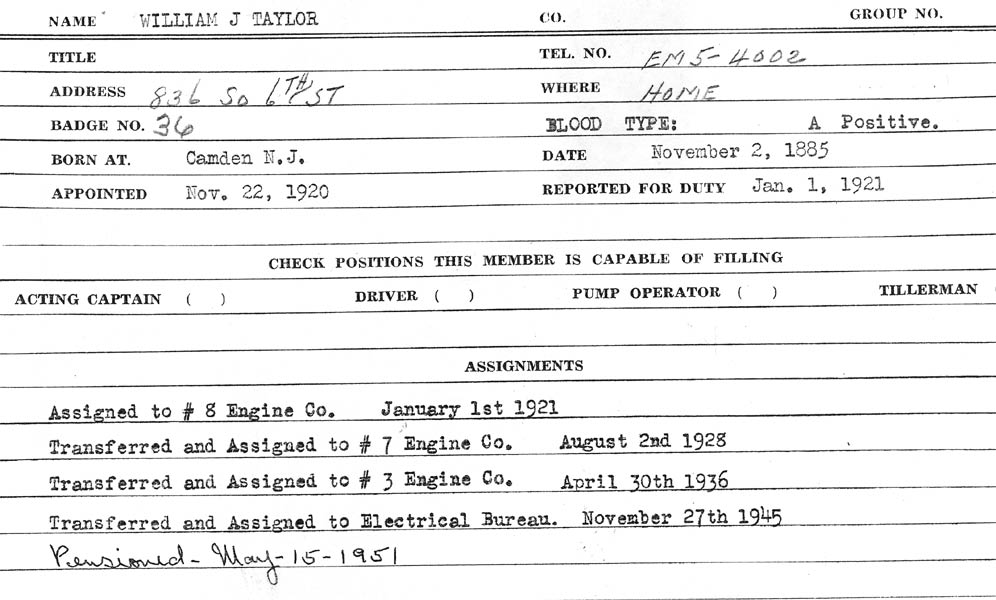 NAME WILLIAM J TAYLOR CO. GROUP NO.
TITLE TEL. NO. EM 5-4002
ADDRESS 836 SO 6TH ST WHERE HOME
BADGE NO. 36 BLOOD TYPE: A Positive.
BORN AT. Camden N.J. DATE November 2, 1885
APPOINTED Nov. 22, 1920 REPORTED FOR DUTY Jan. 1, 1921
CHECK POSITIONS THIS MEMBER IS CAPABLE OF FILLING
ACTING CAPTAIN ( ) DRIVER ( ) PUMP OPERATOR ( ) TILLERMAN (
ASSIGNMENTS
Assigned to # 8 Engine Co. January 1st 1921
Transferred and Assigned to # 7 Engine Co. August 2nd 1928
Transferred and Assigned to # 3 Engine Co. April 30th 1936
Transferred and Assigned to Electrical Bureau. November 27th 1945
Pensioned - May - 15 - 1951